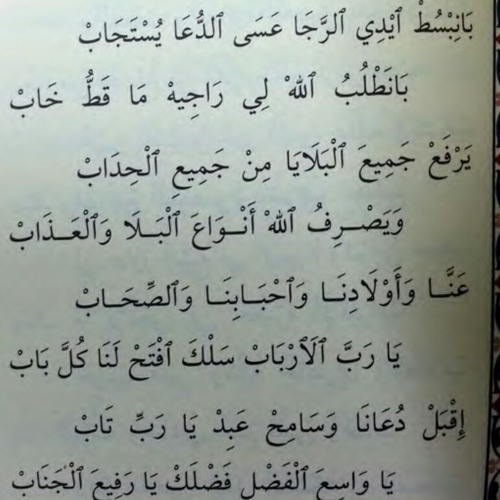 بَانِبْسُطْ ٱيْدِي ٱلرَّجَا عَسَى ٱلدُّعَا يُسْتَجَابْ
بَانَطْلُبُ ٱللهْ لِي رَاجِيهْ مَا قَطُّ خَابْ
يَرْفَعْ جَمِيعَ ٱلْبَلَايَا مِنْ جَمِيعِ ٱلْحِدَابْ
وَيَصْـرِفُ ٱللهْ أَنْـوَاعَ ٱلْبَـلَا وَٱلْعَـذَابْ
عَنَّـا وَأَوْلَادِنَـا وَٱحْبَـابِنَـا وَٱلصِّحَـابْ
يَا رَبَّ ٱلَارْبَابْ سَلْكَ ٱفْتَحْ لَنَا كُلَّ بَابْ
إِقْبَلْ دُعَانَا وَسَامِحْ عَبِدْ يَا رَبِّ تَابْ
يَا وَاسِعَ ٱلْفَضْلِ فَضْلَكْ يَا رَفِيعَ ٱلْجَنَابْ